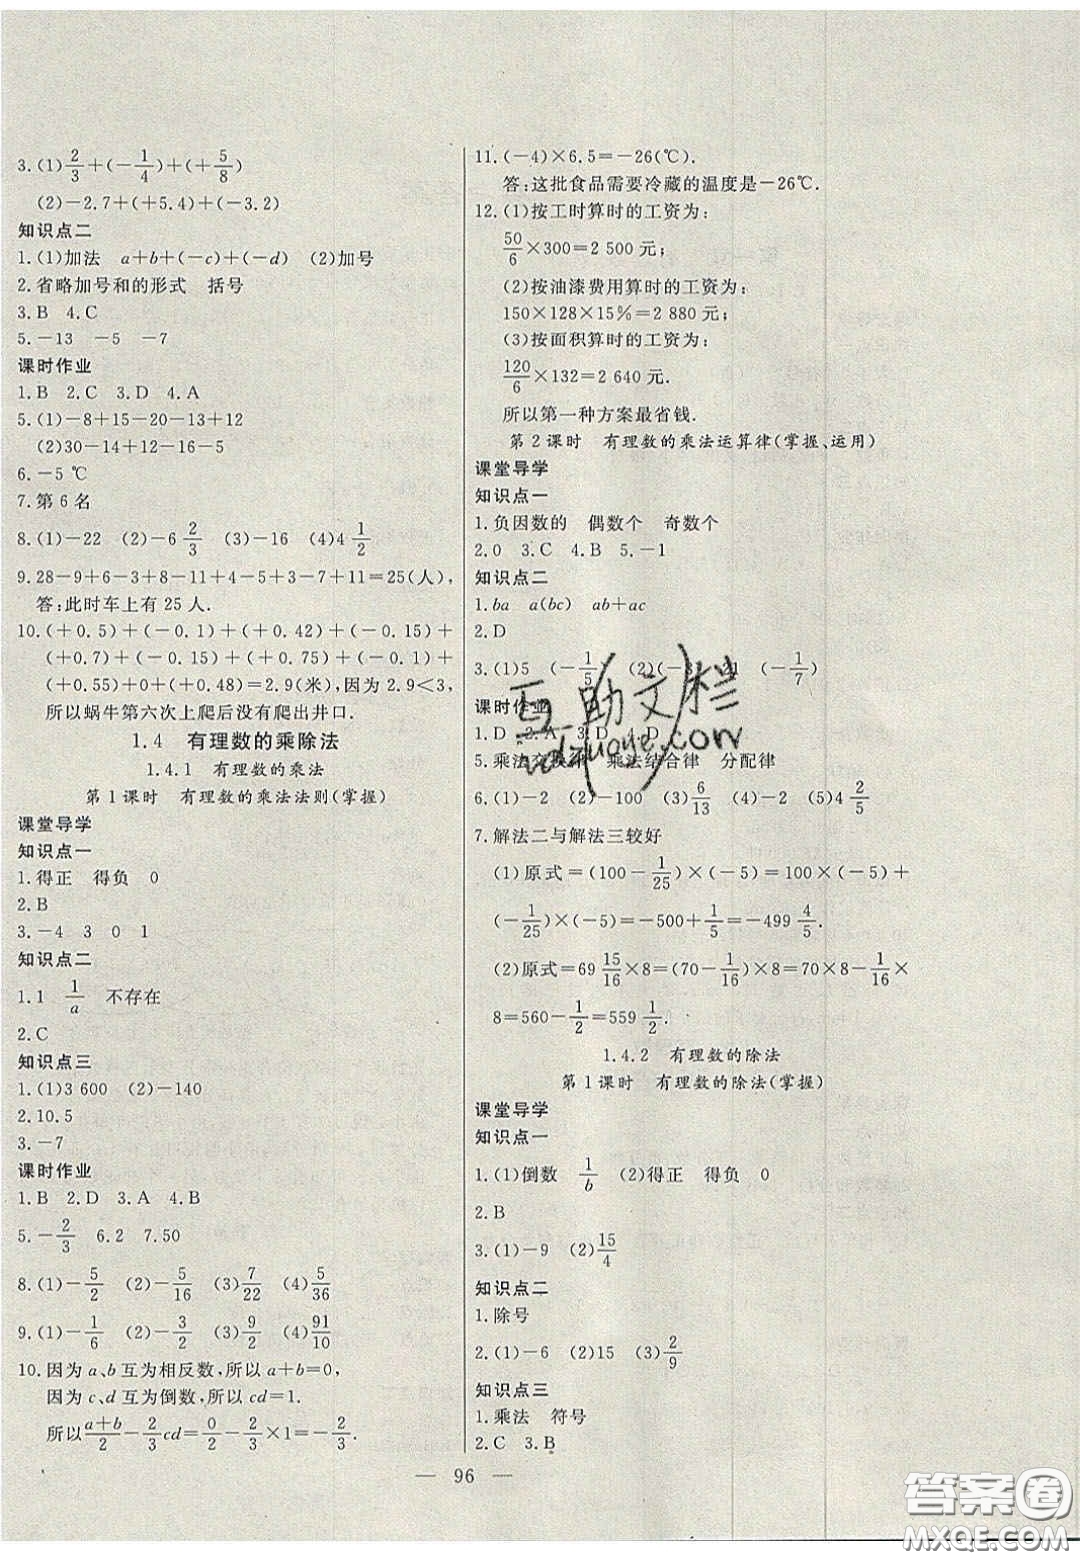 3.(1)2/3+(-1/4)+(+5/8)
(2)-2.7+(+5.4)+(-3.2)
知识点二
1.(1)加法 a+b+(-c)+(-d) (2)加号
2.省略加号和的形式 括号
3.B 4.C
5.-13 -5 -7
课时作业
1.B 2.C 3.D 4.A
5.(1)-8+15-20-13+12
(2)30-14+12-16-5
6.-5 ℃
7.第6名
8.(1)-22 (2)-6 2/3 (3)-16 (4)4 1/2
9.28-9+6-3+8-11+4-5+3-7+11=25(人),
答:此时车上有25人.
10.(+0.5)+(-0.1)+(+0.42)+(-0.15)+
(+0.7)+(-0.15)+(+0.75)+(-0.1)+
(+0.55)+0+(+0.48)=2.9(米),因为2.9<3,
所以蜗牛第六次上爬后没有爬出井口.
1.4 有理数的乘除法
1.4.1 有理数的乘法
第1课时 有理数的乘法法则(掌握)
课堂导学
知识点一
1.得正 得负 0
2.B
3.-4 3 0 1
知识点二
1.1 1/a 不存在
2.C
知识点三
1.(1)3 600 (2)-140
2.10.5
3.-7
课时作业
1.B 2.D 3.A 4.B
5.-2/3 6.2 7.50
8.(1)-5/2 (2)-5/16 (3)7/22 (4)5/36
9.(1)-1/6 (2)-3/2 (3)9/2 (4)91/10
10.因为a、b互为相反数,所以a+b=0,
因为c、d互为倒数,所以cd=1.
所以(a+b)/2-2/3cd=0/2-2/3×1=-2/3.
11.(-4)×6.5=-26(℃).
答:这批食品需要冷藏的温度是-26℃.
12.(1)按工时算时的工资为:
50/6×300=2 500元;
(2)按油漆费用算时的工资为:
150×128×15%=2 880元;
(3)按面积算时的工资为:
120/6×132=2 640元.
所以第一种方案最省钱.
第2课时 有理数的乘法运算律(掌握、运用)
课堂导学
知识点一
1.负因数的 偶数个 奇数个
2.0 3.C 4.B 5.-1
知识点二
1.ba a(bc) ab+ac
2.D
3.(1)5 (-1/5) (2)(-3) 21 (-1/7)
课时作业
1.D 2.A 3.D
5.乘法交换律 乘法结合律 分配律
6.(1)-2 (2)-100 (3)6/13 (4)-2 (5)4 2/5
7.解法二与解法三较好
(1)原式=(100-1/25)×(-5)=100×(-5)+
(-1/25)×(-5)=-500+1/5=-499 4/5.
(2)原式=69 15/16×8=(70-1/16)×8=70×8-1/16×
8=560-1/2=559 1/2.
1.4.2 有理数的除法
第1课时 有理数的除法(掌握)
课堂导学
知识点一
1.(1)倒数 1/b (2)得正 得负 0
2.B
3.(1)-9 (2)15/4
知识点二
1.除号
2.(1)-6 (2)15 (3)2/9
知识点三
1.乘法 符号
2.C 3.B
— 96 —
互助文栏
答案圈
MXQE.COM